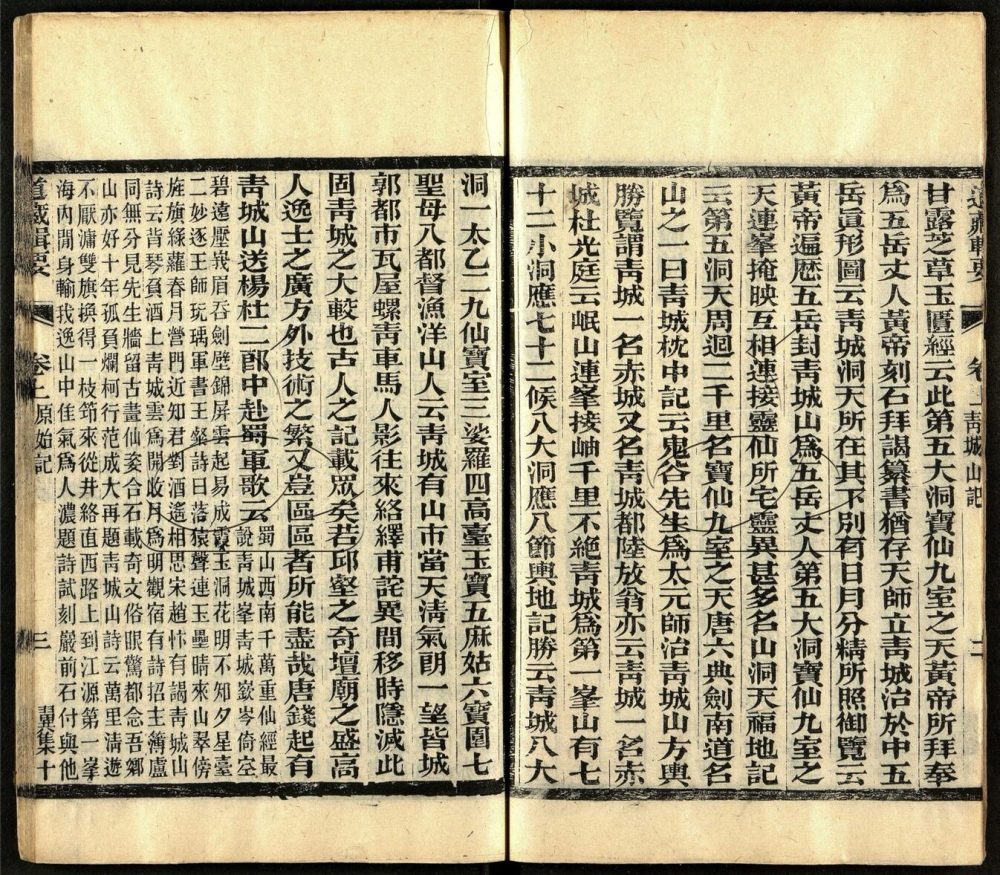 道藏輯要 卷上 青城山記 二
甘露芝草玉匱經云此第五大洞寶仙九室之天黃帝所拜奉
爲五岳丈人黃帝刻石拜謁纂書猶存天師立青城治於中五
岳眞形圖云青城洞天所在其下別有日月分精所照御覽云
黃帝遍歷五岳封青城山爲五岳丈人第五大洞寶仙九室之
天連峯掩映互相連接靈仙所宅靈異甚多名山洞天福地記
云第五洞天周迴二千里名寶仙九室之天唐六典劍南道名
山之一曰青城枕中記云鬼谷先生爲太元師治青城山方輿
勝覽謂青城一名赤城又名青城都陸放翁亦云青城一名赤
城杜光庭云岷山連峯接岫千里不絕青城爲第一峯山有七
十二小洞應七十二候八大洞應八節輿地記勝云青城八大
洞一太乙二九仙寶室三娑羅四高臺玉寶五麻姑六寶圍七
聖母八都督漁洋山人云青城有山市當天淸氣朗一望皆城
郭都市瓦屋螺青車馬人影往來絡繹甫詫異間移時隱滅此
固青城之大較也古人之記載眾矣若邱壑之奇壇廟之盛高
人逸士之廣方外技術之繁又豈區區者所能盡哉唐錢起有
青城山送楊杜二郎中赴蜀軍歌云蜀山西南千萬重仙經最
說青城峯青城嶔岑倚空
碧遠壓峩眉吞劍壁錦屏雲起易成霞玉洞花明不知夕星臺
二妙逐王師阮瑀軍書王粲詩日落猿聲連玉壘晴來山翠傍
旌旗綠蘿春月營門近知君對酒遙相思宋趙忭有謁青城山
詩云背琴負酒上青城雲爲開收月爲明觀宿有詩招主簿廬
同無分見先生牆留古畫仙姿合石載奇文俗眼驚都念吾鄉
山亦好十年孤負爛柯行范成大再題青城山詩云萬里淸遊
不厭漘雙旗換得一枝筇來從井絡直西路上到江源第一峯
海內閒身輸我逸山中佳氣爲人濃題詩試刻巖前石付與他
道藏輯要 卷上 原始記 三 翼集十